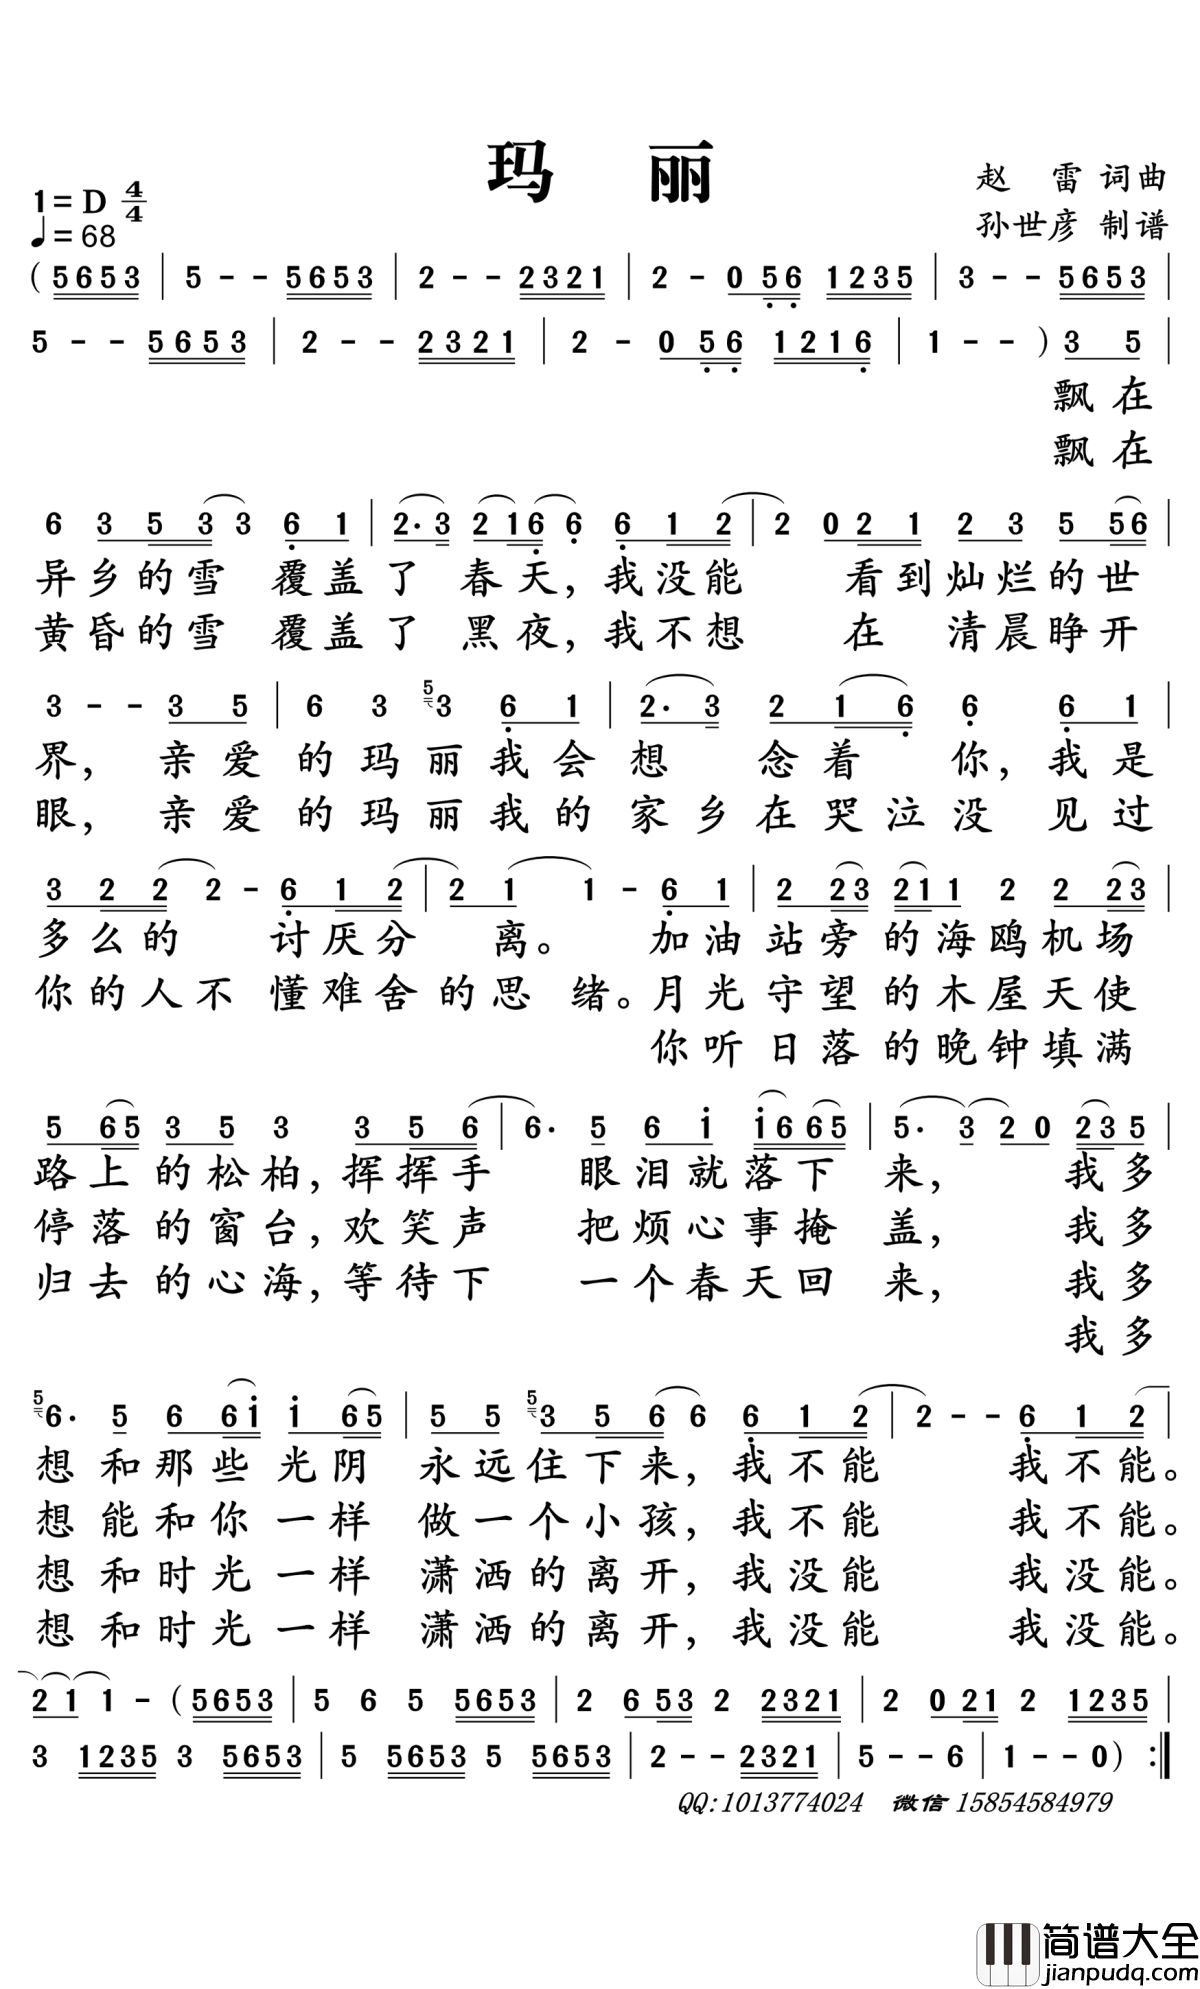 玛 丽
赵 雷 词曲
1= D 4/4
孙世彦 制谱
♩= 68
( 5653 | 5 - - 5653 | 2 - - 2321 | 2 - 0 56 1235 | 3 - - 5653 |
5 - - 5653 | 2 - - 2321 | 2 - 0 56 1216 | 1 - - ) 3 5 |
飘在
飘在
6 3 5 3 3 6 1 | 2· 3 2 1 6 6 6 1 2 | 2 0 2 1 2 3 5 56 |
异乡的雪 覆盖了 春天,我没能 看到灿烂的世
黄昏的雪 覆盖了 黑夜,我不想 在 清晨睁开
3 - - 3 5 | 6 3 5 3 6 1 | 2· 3 2 1 6 6 6 1 |
界, 亲爱的玛丽我会想 念着 你,我是
眼, 亲爱的玛丽我的家乡在哭泣没 见过
3 2 2 2 - 6 1 2 | 2 1 1 - 6 1 | 2 23 21 1 2 2 23 |
多么的 讨厌分 离。 加油站旁的海鸥机场
你的人不 懂难舍的思 绪。月光守望的木屋天使
你听日落的晚钟填满
5 65 3 5 3 3 5 6 | 6· 5 6 i i6 65 | 5· 3 2 0 23 5 |
路上的松柏,挥挥手 眼泪就落下 来, 我多
停落的窗台,欢笑声 把烦心事掩 盖, 我多
归去的心海,等待下 一个春天回 来, 我多
我多
5 6· 5 6 6i i 65 | 5 5 5 3 5 6 6 6 1 2 | 2 - - 6 1 2 |
想和那些光阴 永远住下来,我不能 我不能。
想能和你一样 做一个小孩,我不能 我不能。
想和时光一样 潇洒的离开,我没能 我没能。
想和时光一样 潇洒的离开,我没能 我没能。
2 1 1 - ( 5653 | 5 6 5 5653 | 2 6 53 2 2321 | 2 0 21 2 1235 |
3 1235 3 5653 | 5 5653 5 5653 | 2 - - 2321 | 5 - - 6 | 1 - - 0 ) :||
QQ:1013774024 微信 15854584979
简谱大全
jianpudq.com